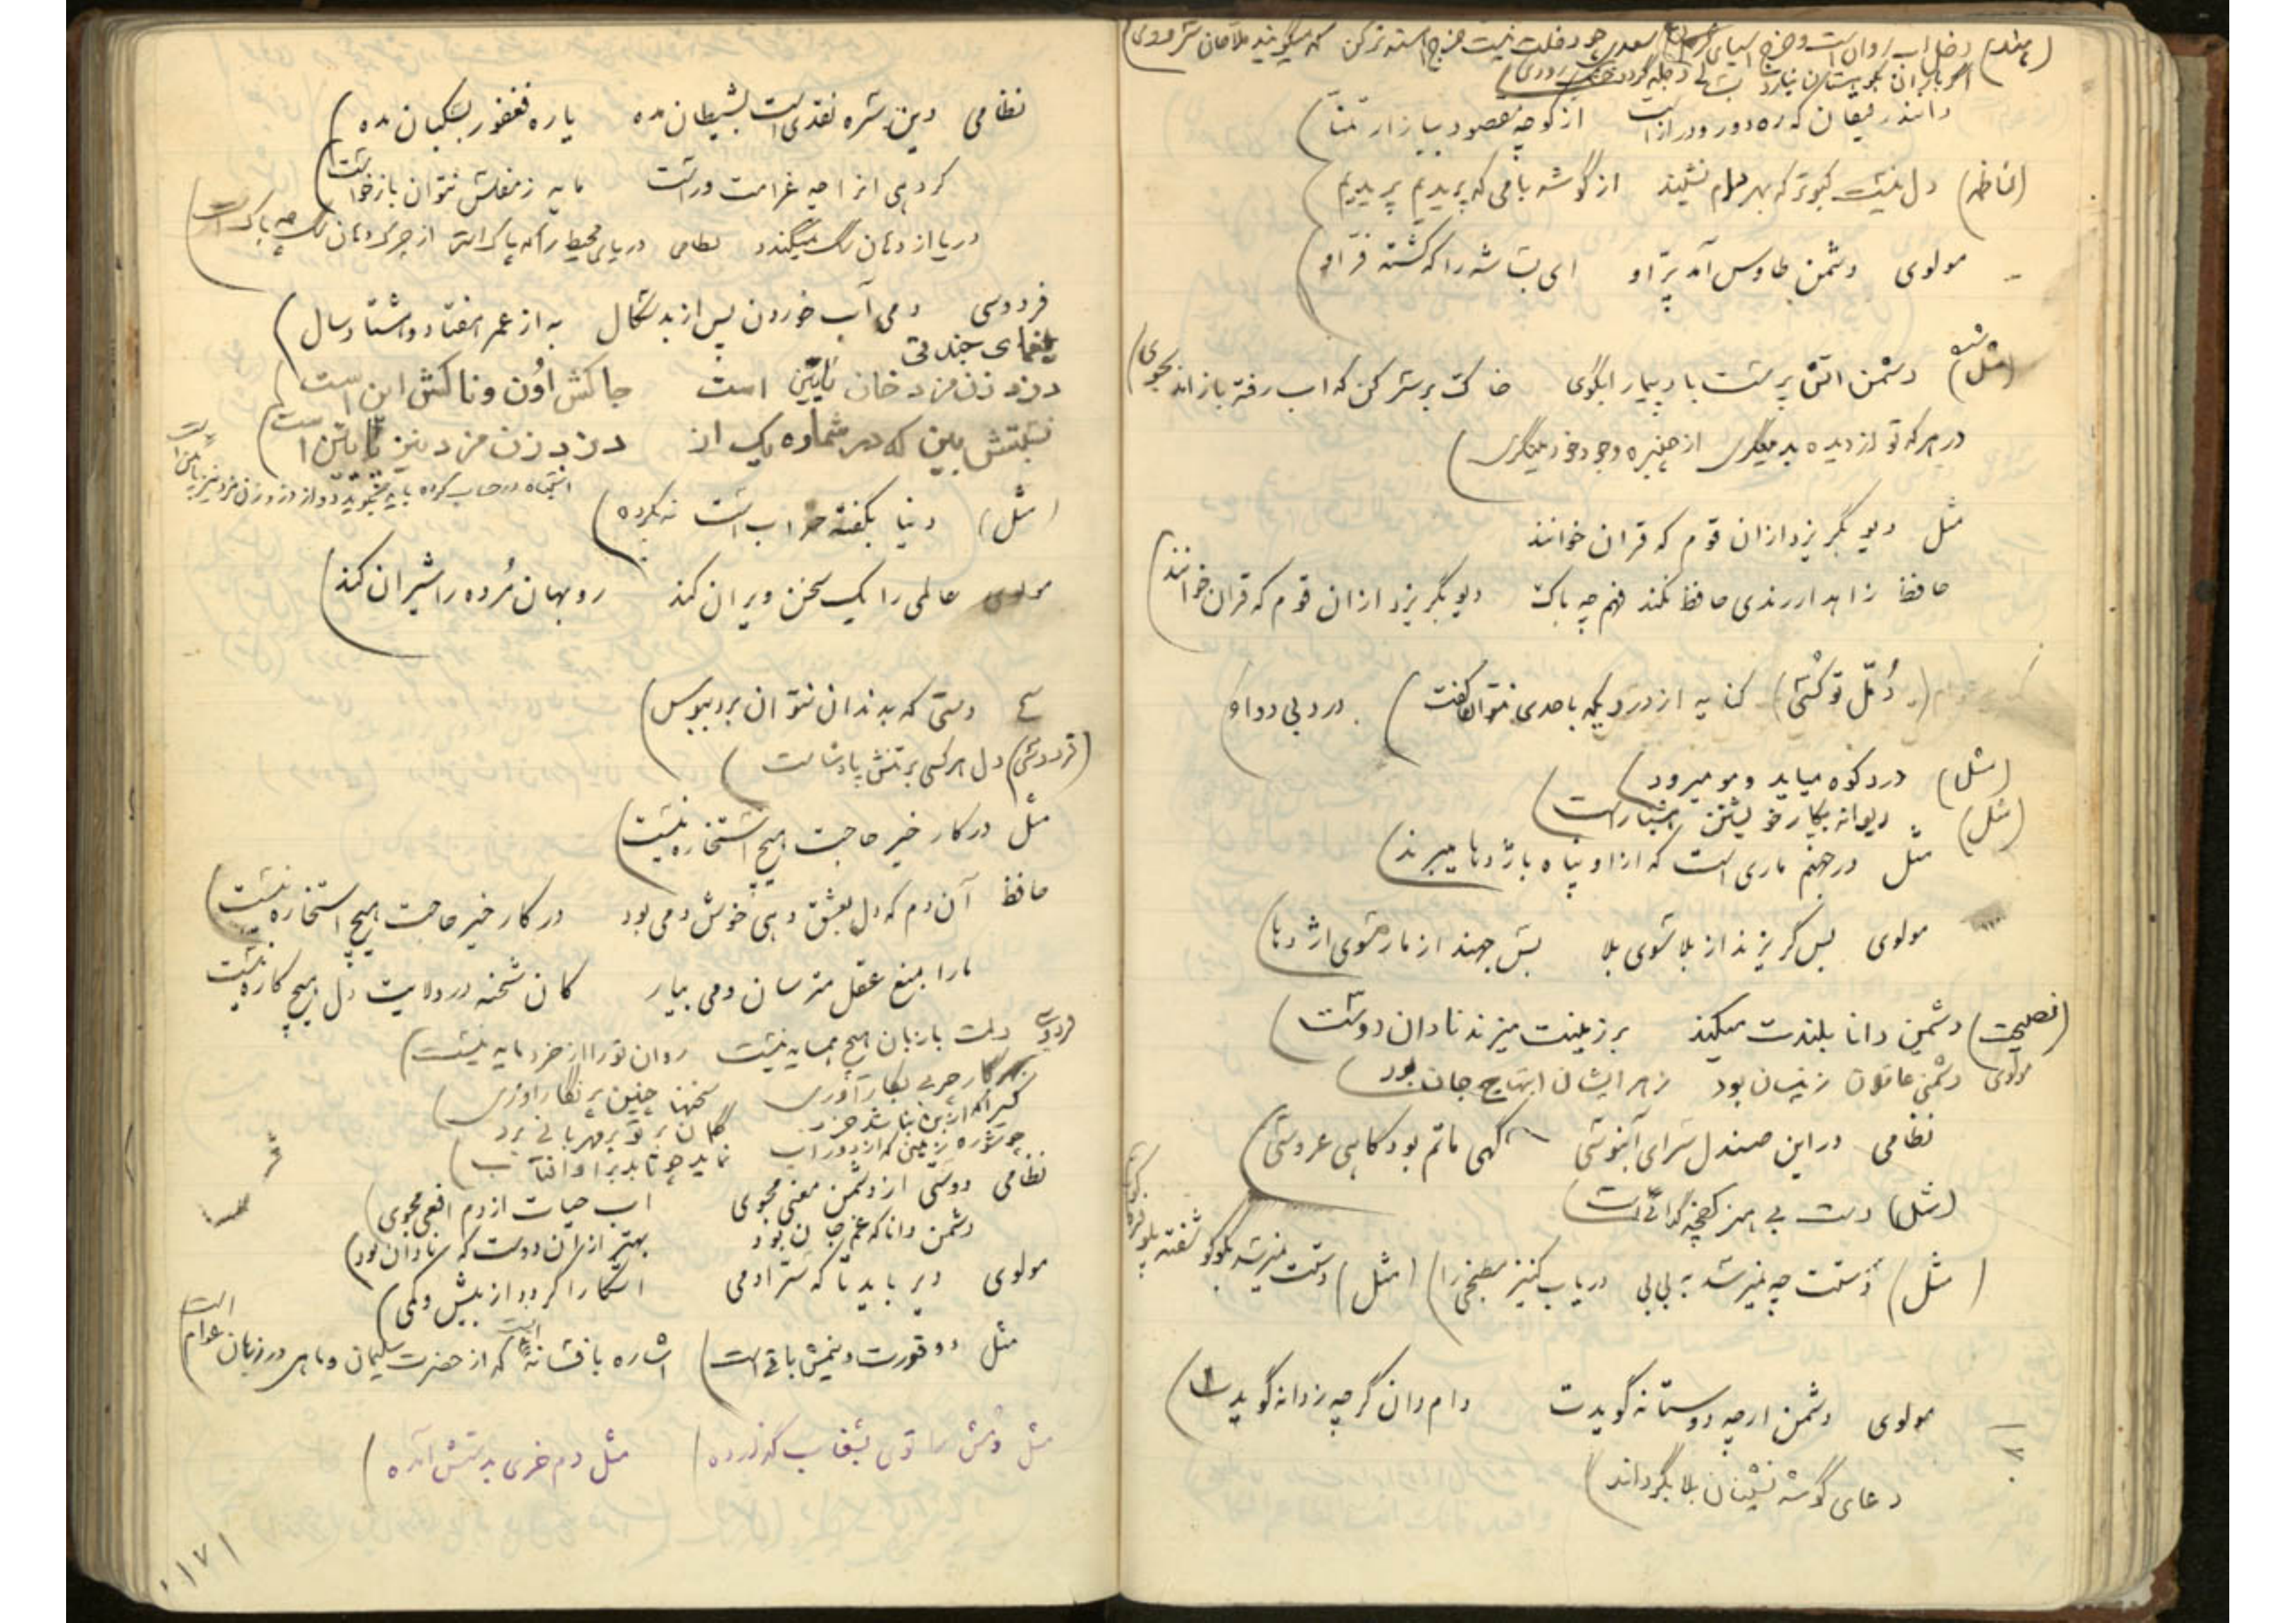 (مثل) دخل آب روان است و خرج آسیای گردان سعدی چو دخلت نیست خرج آهسته تر کن که میگویند ملاحان سرودی
اگر باران بکوهستان نبارد بسالی دجله گردد خشک رودی
دانند رفیقان که ره دور و دراز است از کوچه مقصود ببازار تمنا
دل نیست کبوتر که بهر بام نشیند از گوشه بامی که پریدیم پریدیم
مولوی دشمن طاوس آمد پر او ای بسا شه را که کشته فر او
(مثل) دشمن آتش پرست باد پیما را بگوی خاک بر سر کن که آب رفته باز آمد بجوی
در هر که تو از دیده بد مینگری از چنبره وجود خود مینگری
مثل دیو بگریزد از آن قوم که قران خوانند
حافظ زاهد ار رندی حافظ نکند فهم چه باک دیو بگریزد از آن قوم که قران خوانند
(دمل تو کشی) کنایه از دردیکه باحدی نتوان گفت درد بی دوا
(مثل) درد کوه میاید و مو میرود
(مثل) دیوانه بکار خویشتن هشیار است
مثل در جهنم ماری است که از او پناه باژدها میبرند
مولوی بس گریزند از بلا سوی بلا بس جهند از مار سوی اژدها
(نصیحت) دشمن دانا بلندت میکند بر زمینت میزند نادان دوست
مولوی دشمنی عاقلان زینسان بود زهر ایشان ابتهاج جان بود
نظامی در این صندل سرای آبنوسی گهی ماتم بود گاهی عروسی
(مثل) دست بی هنر کفچه گدائی است
(مثل) دستت چه نمیرسد به بی بی دریاب کنیز مطبخی را) (مثل) دستت نمیرسد بکوکو
مولوی دشمن ارچه دوستانه گویدت دام دان گر چه ز دانه گویدت
دعای گوشه نشینان بلا بگرداند
نظامی دین سره نقدی است بشیطان مده یاره فغفور بسگبان مده
گر دهی آنرا چه غرامت وراست مایه ز مفلس نتوان بازخواست
دریا از دهان سگ میگندد نظامی دریای محیط را که پاک است از چرک دهان سگ چه باک است
فردوسی دمی آب خوردن پس از بدسگال به از عمر هفتاد و هشتاد سال
یغمای جندقی
دزد زن مزد خان نایین است جاکش اون و ناکش این است
نسبتش بین که در شماره یک از دزد زن مزد نیز نایین است
(مثل) دنیا بکفته خراب است نه بکرده
مولوی عالمی را یک سخن ویران کند روبهان مرده را شیران کند
دستی که بدندان نتوان برد ببوس
(فردوسی) دل هر کسی بر تنش پادشاست
مثل در کار خیر حاجت هیچ استخاره نیست
حافظ آن دم که دل بعشق دهی خوش دمی بود در کار خیر حاجت هیچ استخاره نیست
ما را بمنع عقل مترسان و می بیار کان شحنه در ولایت دل هیچ کاره نیست
فردوسی دلت با زبان هیچ همسایه نیست روان تو را از خرد مایه نیست
سخنها چنین پر نگار آوری
گمان بر تو بر مهربانی برد
چو شوره زمینی که از دور آب نماید چو تابد بر او آفتاب
نظامی دوستی از دشمن معنی مجوی آب حیات از دم افعی مجوی
دشمن دانا که غم جان بود بهتر از آن دوست که نادان بود
مولوی دیر باید تا که سر آدمی آشکارا گردد از بیش و کمی
مثل دو قورت و نیمش باقی است) اشاره بافسانه که از حضرت سلیمان و ماهی در زبان عوام است
مثل دمش را توی بشقاب گذارده) مثل دم خری بدستش آمده
۱۷۱